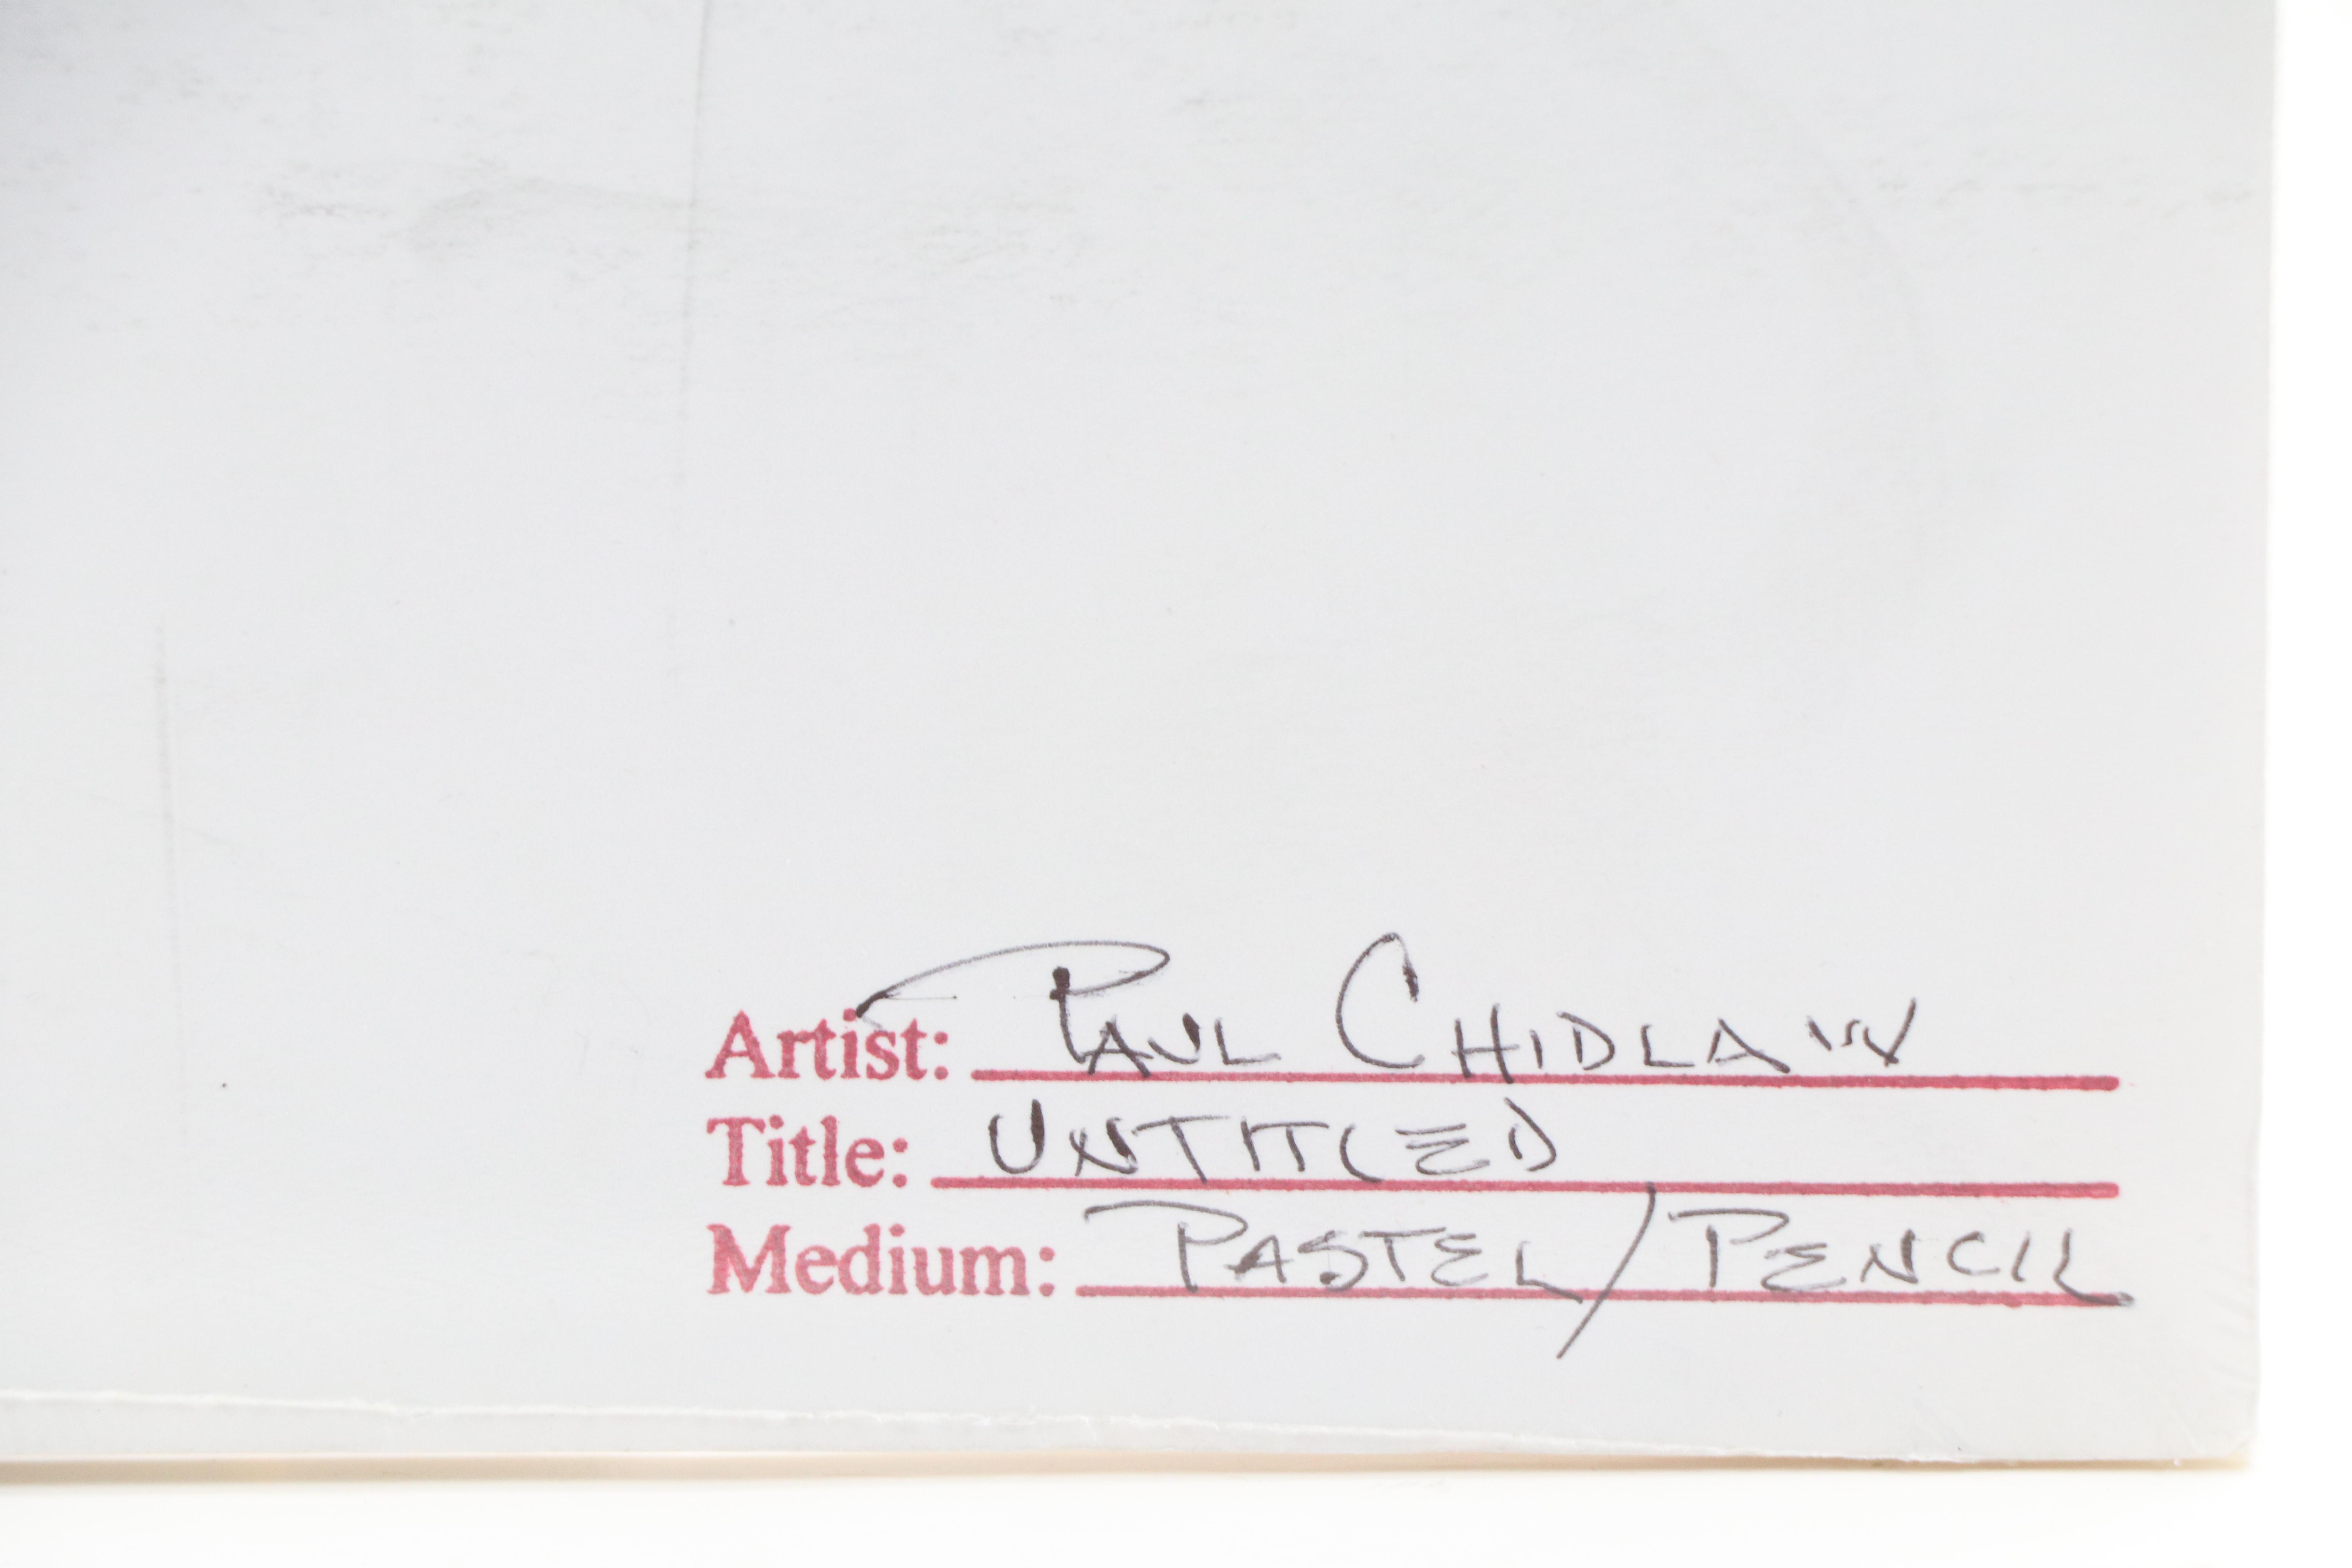 Artist: PAUL CHIDLAW
Title: UNTITLED
Medium: PASTEL/PENCIL